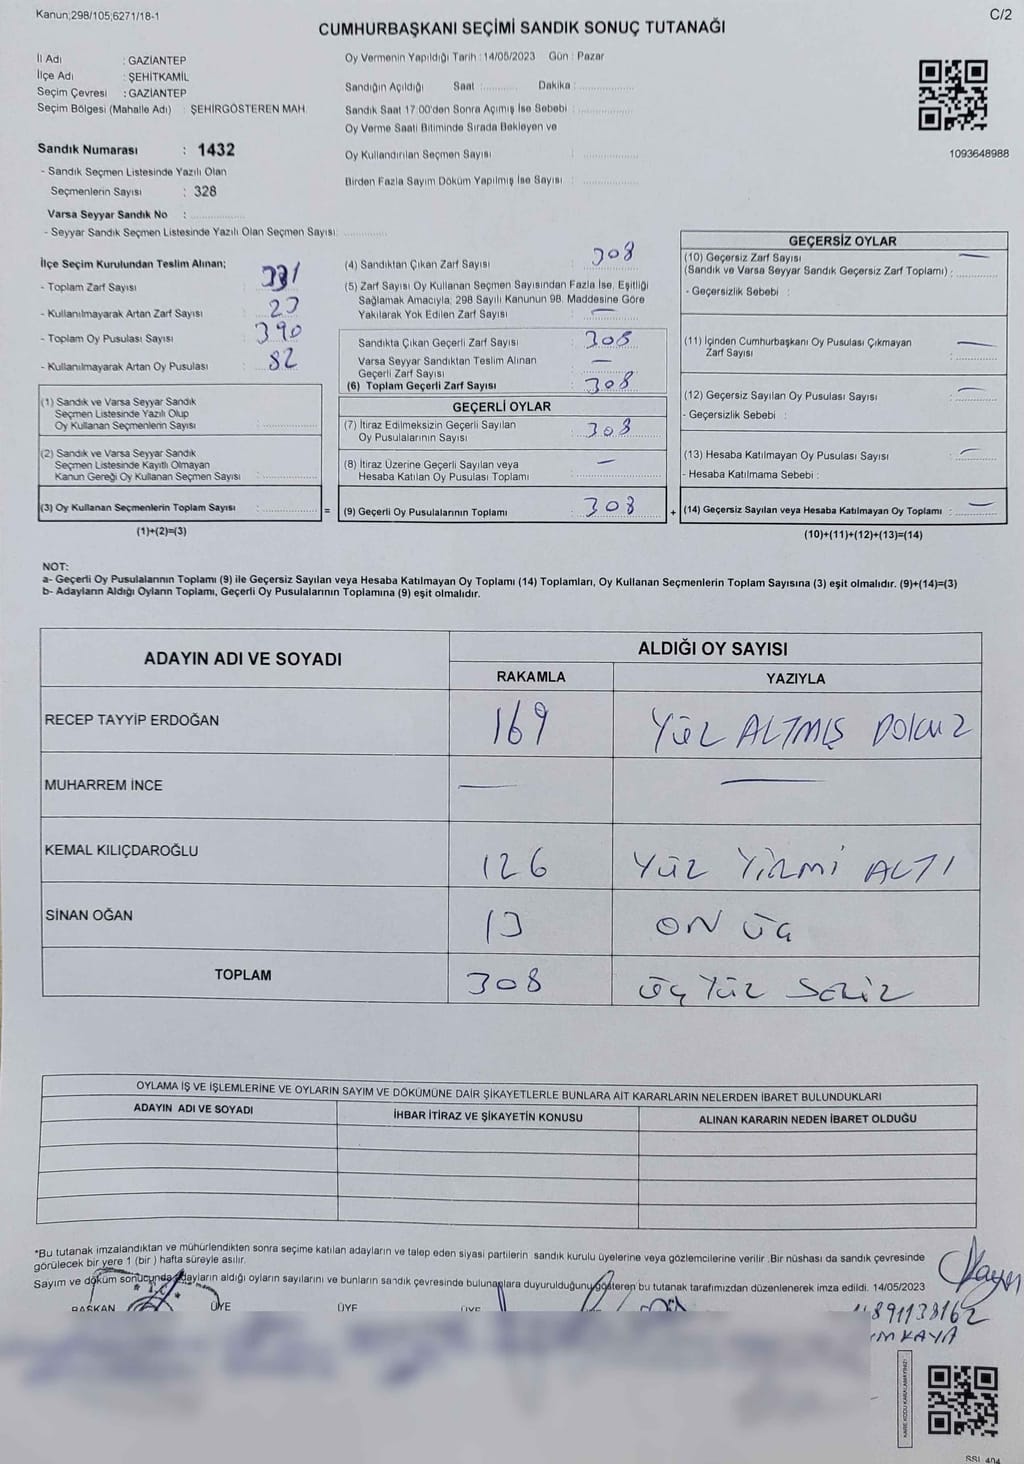 Kanun;298/105;6271/18-1
C/2
CUMHURBAŞKANI SEÇİMİ SANDIK SONUÇ TUTANAĞI
İl Adı : GAZİANTEP
İlçe Adı : ŞEHİTKAMİL
Seçim Çevresi : GAZİANTEP
Seçim Bölgesi (Mahalle Adı) : ŞEHİRGÖSTEREN MAH.
Sandık Numarası : 1432
- Sandık Seçmen Listesinde Yazılı Olan
Seçmenlerin Sayısı : 328
Varsa Seyyar Sandık No :
- Seyyar Sandık Seçmen Listesinde Yazılı Olan Seçmen Sayısı:
Oy Vermenin Yapıldığı Tarih : 14/05/2023 Gün : Pazar
Sandığın Açıldığı Saat : Dakika :
Sandık Saat 17:00'den Sonra Açımış İse Sebebi :
Oy Verme Saati Bitiminde Sırada Bekleyen ve
Oy Kullandırılan Seçmen Sayısı :
Birden Fazla Sayım Döküm Yapılmış İse Sayısı :
1093648988
İlçe Seçim Kurulundan Teslim Alınan;
- Toplam Zarf Sayısı : 331
- Kullanılmayarak Artan Zarf Sayısı : 23
- Toplam Oy Pusulası Sayısı : 390
- Kullanılmayarak Artan Oy Pusulası : 82
(1) Sandık ve Varsa Seyyar Sandık
Seçmen Listesinde Yazılı Olup
Oy Kullanan Seçmenlerin Sayısı :
(2) Sandık ve Varsa Seyyar Sandık
Seçmen Listesinde Kayıtlı Olmayan
Kanun Gereği Oy Kullanan Seçmen Sayısı :
(3) Oy Kullanan Seçmenlerin Toplam Sayısı : =
(1)+(2)=(3)
(4) Sandıktan Çıkan Zarf Sayısı : 308
(5) Zarf Sayısı Oy Kullanan Seçmen Sayısından Fazla İse, Eşitliği
Sağlamak Amacıyla; 298 Sayılı Kanunun 98. Maddesine Göre
Yakılarak Yok Edilen Zarf Sayısı : —
Sandıkta Çıkan Geçerli Zarf Sayısı : 308
Varsa Seyyar Sandıktan Teslim Alınan
Geçerli Zarf Sayısı : —
(6) Toplam Geçerli Zarf Sayısı : 308
GEÇERLİ OYLAR
(7) İtiraz Edilmeksizin Geçerli Sayılan
Oy Pusulalarının Sayısı : 308
(8) İtiraz Üzerine Geçerli Sayılan veya
Hesaba Katılan Oy Pusulası Toplamı : —
(9) Geçerli Oy Pusulalarının Toplamı : 308 +
GEÇERSİZ OYLAR
(10) Geçersiz Zarf Sayısı —
(Sandık ve Varsa Seyyar Sandık Geçersiz Zarf Toplamı) :
- Geçersizlik Sebebi :
(11) İçinden Cumhurbaşkanı Oy Pusulası Çıkmayan
Zarf Sayısı : —
(12) Geçersiz Sayılan Oy Pusulası Sayısı : —
- Geçersizlik Sebebi :
(13) Hesaba Katılmayan Oy Pusulası Sayısı : —
- Hesaba Katılmama Sebebi :
(14) Geçersiz Sayılan veya Hesaba Katılmayan Oy Toplamı : —
(10)+(11)+(12)+(13)=(14)
NOT:
a- Geçerli Oy Pusulalarının Toplamı (9) ile Geçersiz Sayılan veya Hesaba Katılmayan Oy Toplamı (14) Toplamları, Oy Kullanan Seçmenlerin Toplam Sayısına (3) eşit olmalıdır. (9)+(14)=(3)
b- Adayların Aldığı Oyların Toplamı, Geçerli Oy Pusulalarının Toplamına (9) eşit olmalıdır.
ADAYIN ADI VE SOYADI
ALDIĞI OY SAYISI
RAKAMLA YAZIYLA
RECEP TAYYİP ERDOĞAN 169 YÜZ ALTMIŞ DOKUZ
MUHARREM İNCE — —
KEMAL KILIÇDAROĞLU 126 YÜZ YİRMİ ALTI
SİNAN OĞAN 13 ON ÜÇ
TOPLAM 308 ÜÇ YÜZ SEKİZ
OYLAMA İŞ VE İŞLEMLERİNE VE OYLARIN SAYIM VE DÖKÜMÜNE DAİR ŞİKAYETLERLE BUNLARA AİT KARARLARIN NELERDEN İBARET BULUNDUKLARI
ADAYIN ADI VE SOYADI İHBAR İTİRAZ VE ŞİKAYETİN KONUSU ALINAN KARARIN NEDEN İBARET OLDUĞU
*Bu tutanak imzalandıktan ve mühürlendikten sonra seçime katılan adayların ve talep eden siyasi partilerin sandık kurulu üyelerine veya gözlemcilerine verilir .Bir nüshası da sandık çevresinde
görülecek bir yere 1 (bir ) hafta süreyle asılır.
Sayım ve döküm sonucunda adayların aldığı oyların sayılarını ve bunların sandık çevresinde bulunanlara duyurulduğunu gösteren bu tutanak tarafımızdan düzenlenerek imza edildi. 14/05/2023
BAŞKAN ÜYE ÜYE ÜYE
KAYA
KARE KODU KARALAMAYINIZ!